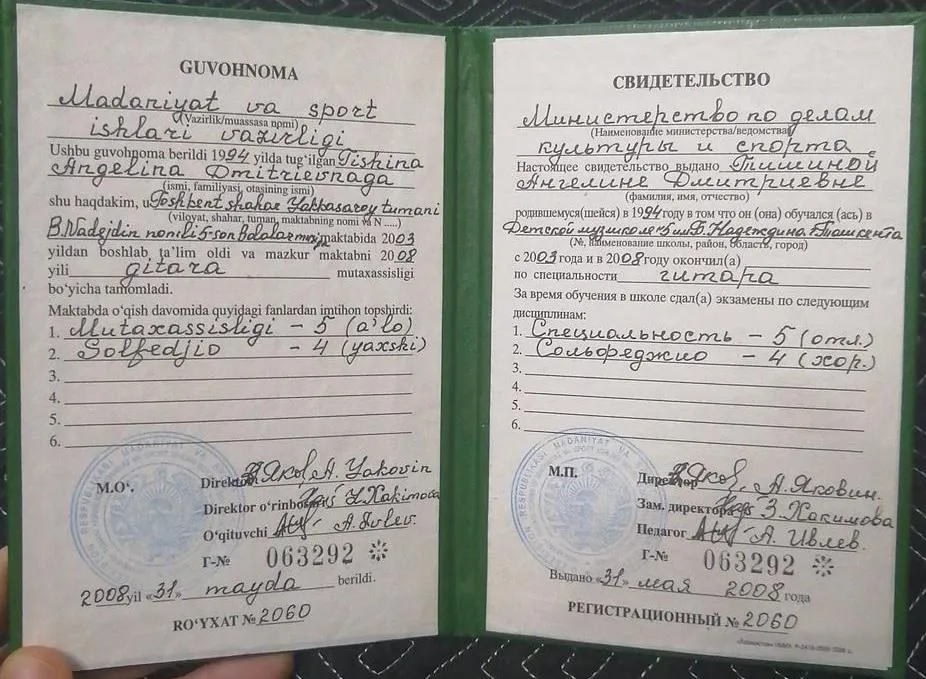 GUVOHNOMA
Madaniyat va sport
(Vazirlik/muassasa nomi)
ishlari vazirligi
Ushbu guvohnoma berildi 1994 yilda tug‘ilgan Tishina
Angelina Dmitrievnaga
(ismi, familiyasi, otasining ismi)
shu haqdakim, u Toshkent shahar Yakkasaroy tumani
(viloyat, shahar, tuman, maktabning nomi va N .....)
B.Nadejdin nomli 5-son Bolalar maktabida 2003
yildan boshlab ta’lim oldi va mazkur maktabni 2008
yili gitara mutaxassisligi
bo‘yicha tamomladi.
Maktabda o‘qish davomida quyidagi fanlardan imtihon topshirdi:
1. Mutaxassisligi – 5 (a’lo)
2. Solfedjio – 4 (yaxshi)
3.
4.
5.
6.
M.O‘.
Direktor A. Yakovin
Direktor o‘rinbosari Z. Hakimova
O‘qituvchi A. Ivlev.
Г-№ 063292
2008 yil «31» mayda berildi.
RO‘YXAT № 2060
СВИДЕТЕЛЬСТВО
Министерство по делам
(Наименование министерства/ведомства)
культуры и спорта
Настоящее свидетельство выдано Тишиной
Ангелине Дмитриевне
(фамилия, имя, отчество)
родившемуся(шейся) в 1994 году в том что он (она) обучался (ась) в
Детской музшколе №5 им.Б.Надеждина г.Ташкента
(№, наименование школы, район, область, город)
с 2003 года и в 2008 году окончил(а)
по специальности гитара
За время обучения в школе сдал(а) экзамены по следующим
дисциплинам:
1. Специальность – 5 (отл.)
2. Сольфеджио – 4 (хор.)
3.
4.
5.
6.
М.П.
Директор А. Яковин.
Зам. директора З. Хакимова
Педагог А. Ивлев.
Г-№ 063292
Выдано «31» мая 2008 года
РЕГИСТРАЦИОННЫЙ № 2060